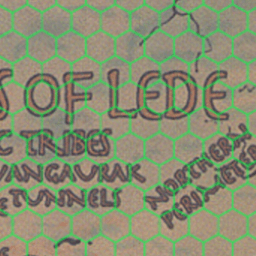 S OF LEDE
C TRIBES
VANGAURAK
TUNNELS
NORTHERN
PERIMETER